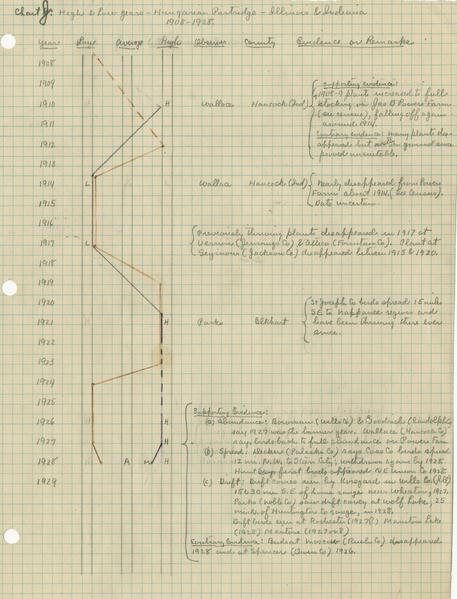 Chart J: High & Low years - Hungarian Partridge - Illinois & Indiana
1908-1928.
Year Low Average High Observer County Evidence or Remarks
1908
1909
1910 H Wallace Hancock (Ind)
Supporting evidence:
1908-9 plants increased to full
stocking on Jas O Powers Farm
(see census), falling off again
around 1914.
Contrary evidence: many plants dis-
appeared but on ground since
proved unsuitable.
1911
1912
1913
1914 L Wallace Hancock (Ind)
Nearly disappeared from Powers
Farm about 1914 (see Census).
Date uncertain.
1915
1916
1917 L
Previously thriving plants disappeared in 1917 at
Vernon (Jennings Co) & Attica (Fountain Co). Plant at
Seymour (Jackson Co) disappeared between 1915 & 1920.
1918
1919
1920
1921 H Parks Elkhart
St Joseph Co birds spread 15 miles
SE to Nappanee region and
have been thriving there ever
since.
1922
1923
1924
1925
1926 H
1927 H
1928 L A M H
1929
Supporting Evidence:
(a) Abundance: Bowman (Wells Co) & Goodrich (Randolph)
say 1927 was the banner year. Wallace (Hancock Co)
says birds back to full abundance on Powers Farm
(b) Spread: (Pulaski Co) says Cass Co birds spread
12 mi. N.W. to Star City; withdrawn again by 1928
birds appeared NE 1928
(c) Drift: Drift comes seen by in Wills Co (Ill)
15 to 30 mi S.E. of home range near Wheaton, 1927.
Parks (Noble Co) saw drift covey at Wolf Lake, 25
miles of Huntington Co range, in 1928.
Drift birds seen at Rochester (1927?) Manitou Lake
(1928) (1927 or 8)
Contrary Evidence: Birds at Moscow (Rush Co) disappeared
1928 and at Spencer (Owen Co) 1926.